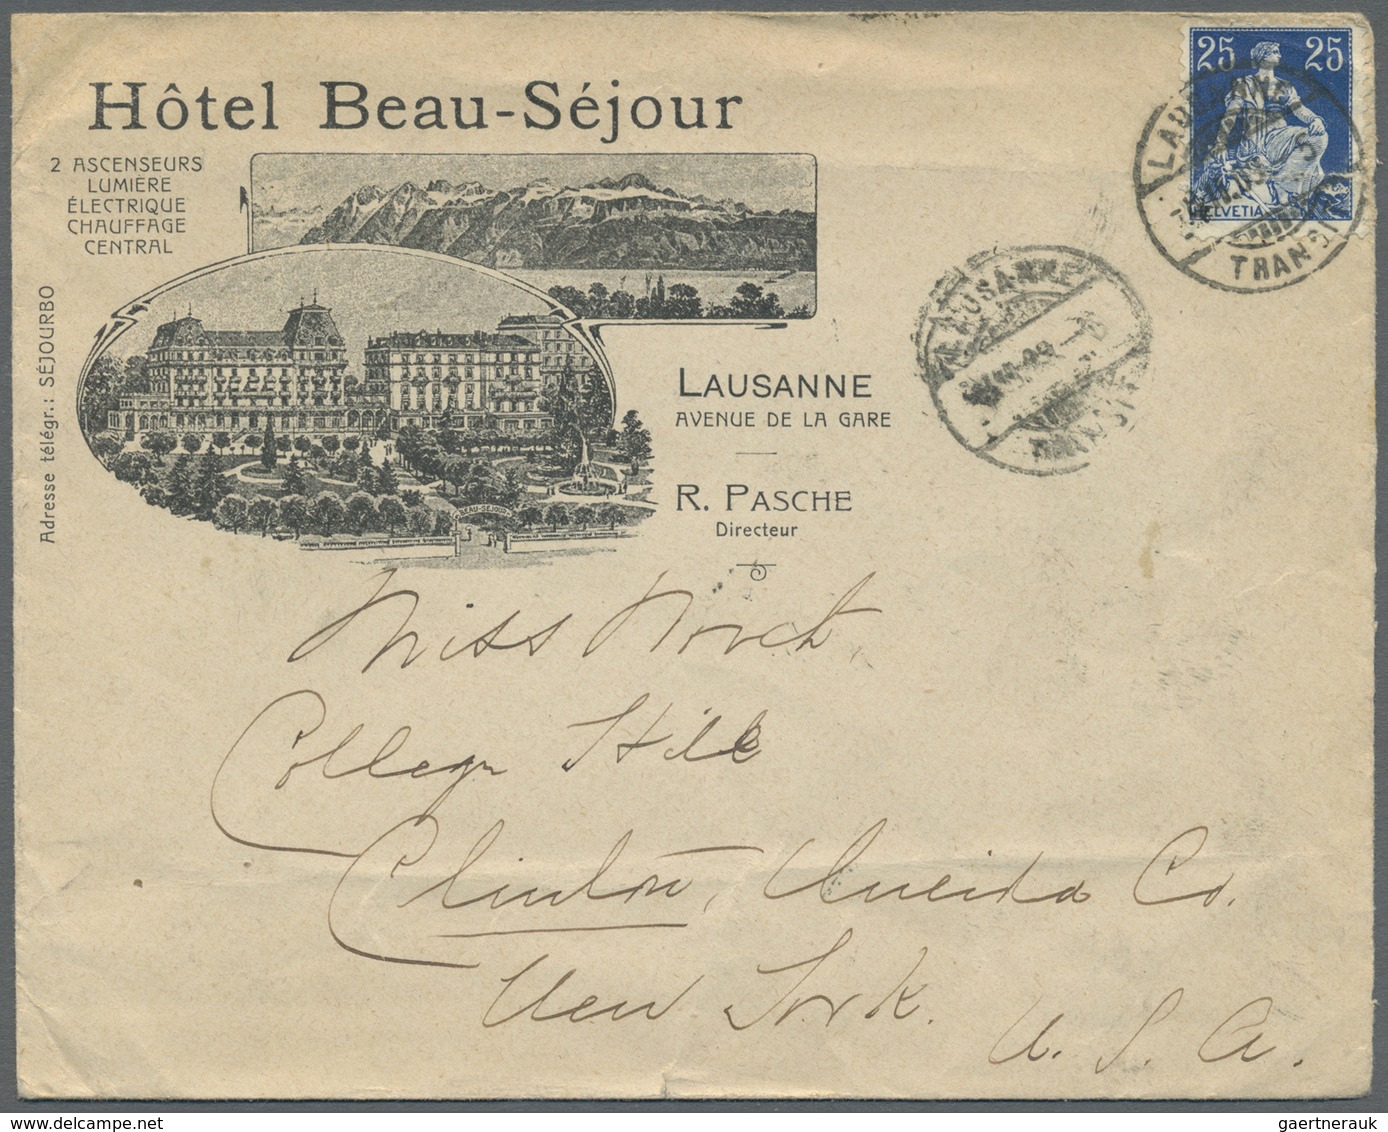 Hôtel Beau-Séjour
2 ASCENSEURS
LUMIÈRE
ÉLECTRIQUE
CHAUFFAGE
CENTRAL
Adresse télégr.: SÉJOURBO
BEAU-SEJOUR
LAUSANNE
AVENUE DE LA GARE
R. PASCHE
Directeur
25 25
HELVETIA
LAUSANNE
TRANSIT
LAUSANNE
TRANSIT
Miss
College Hill
Clinton, Oneida Co.
New York.
U. S. A.
www.delcampe.net
gaertnerauk